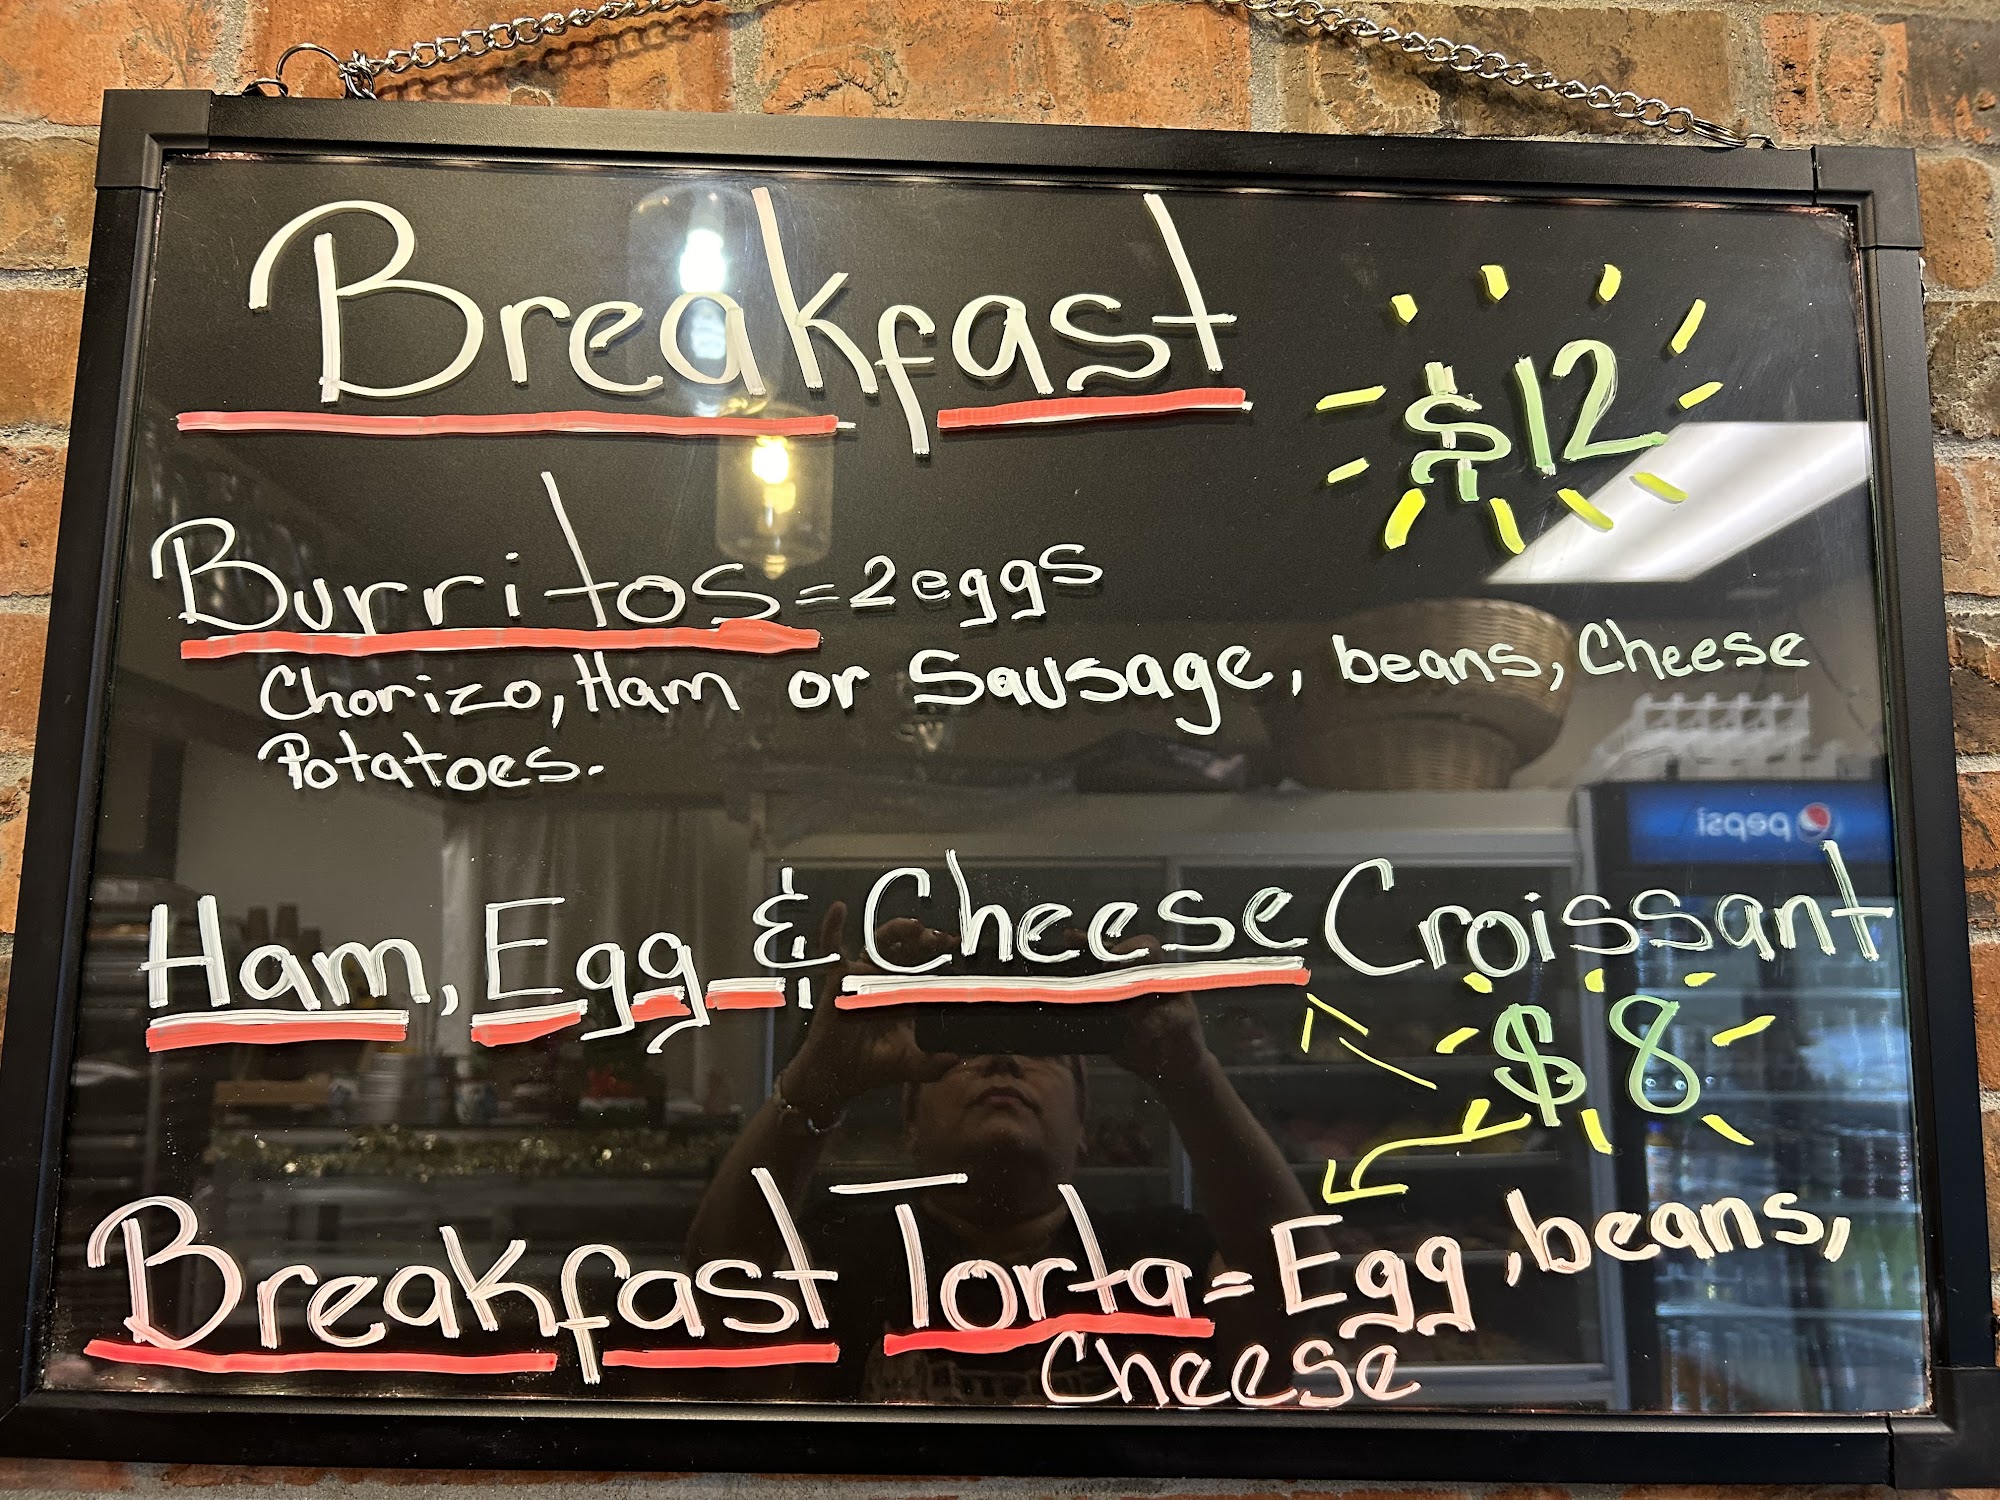 Breakfast
$12
Burritos = 2 eggs
Chorizo, Ham or Sausage, beans, Cheese
Potatoes.
Ham, Egg & Cheese Croissant
$8
Breakfast Torta = Egg, beans,
Cheese
pepsi